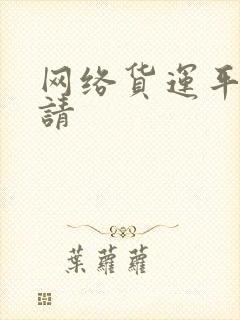 网络貨運平
請
葉蘿蘿